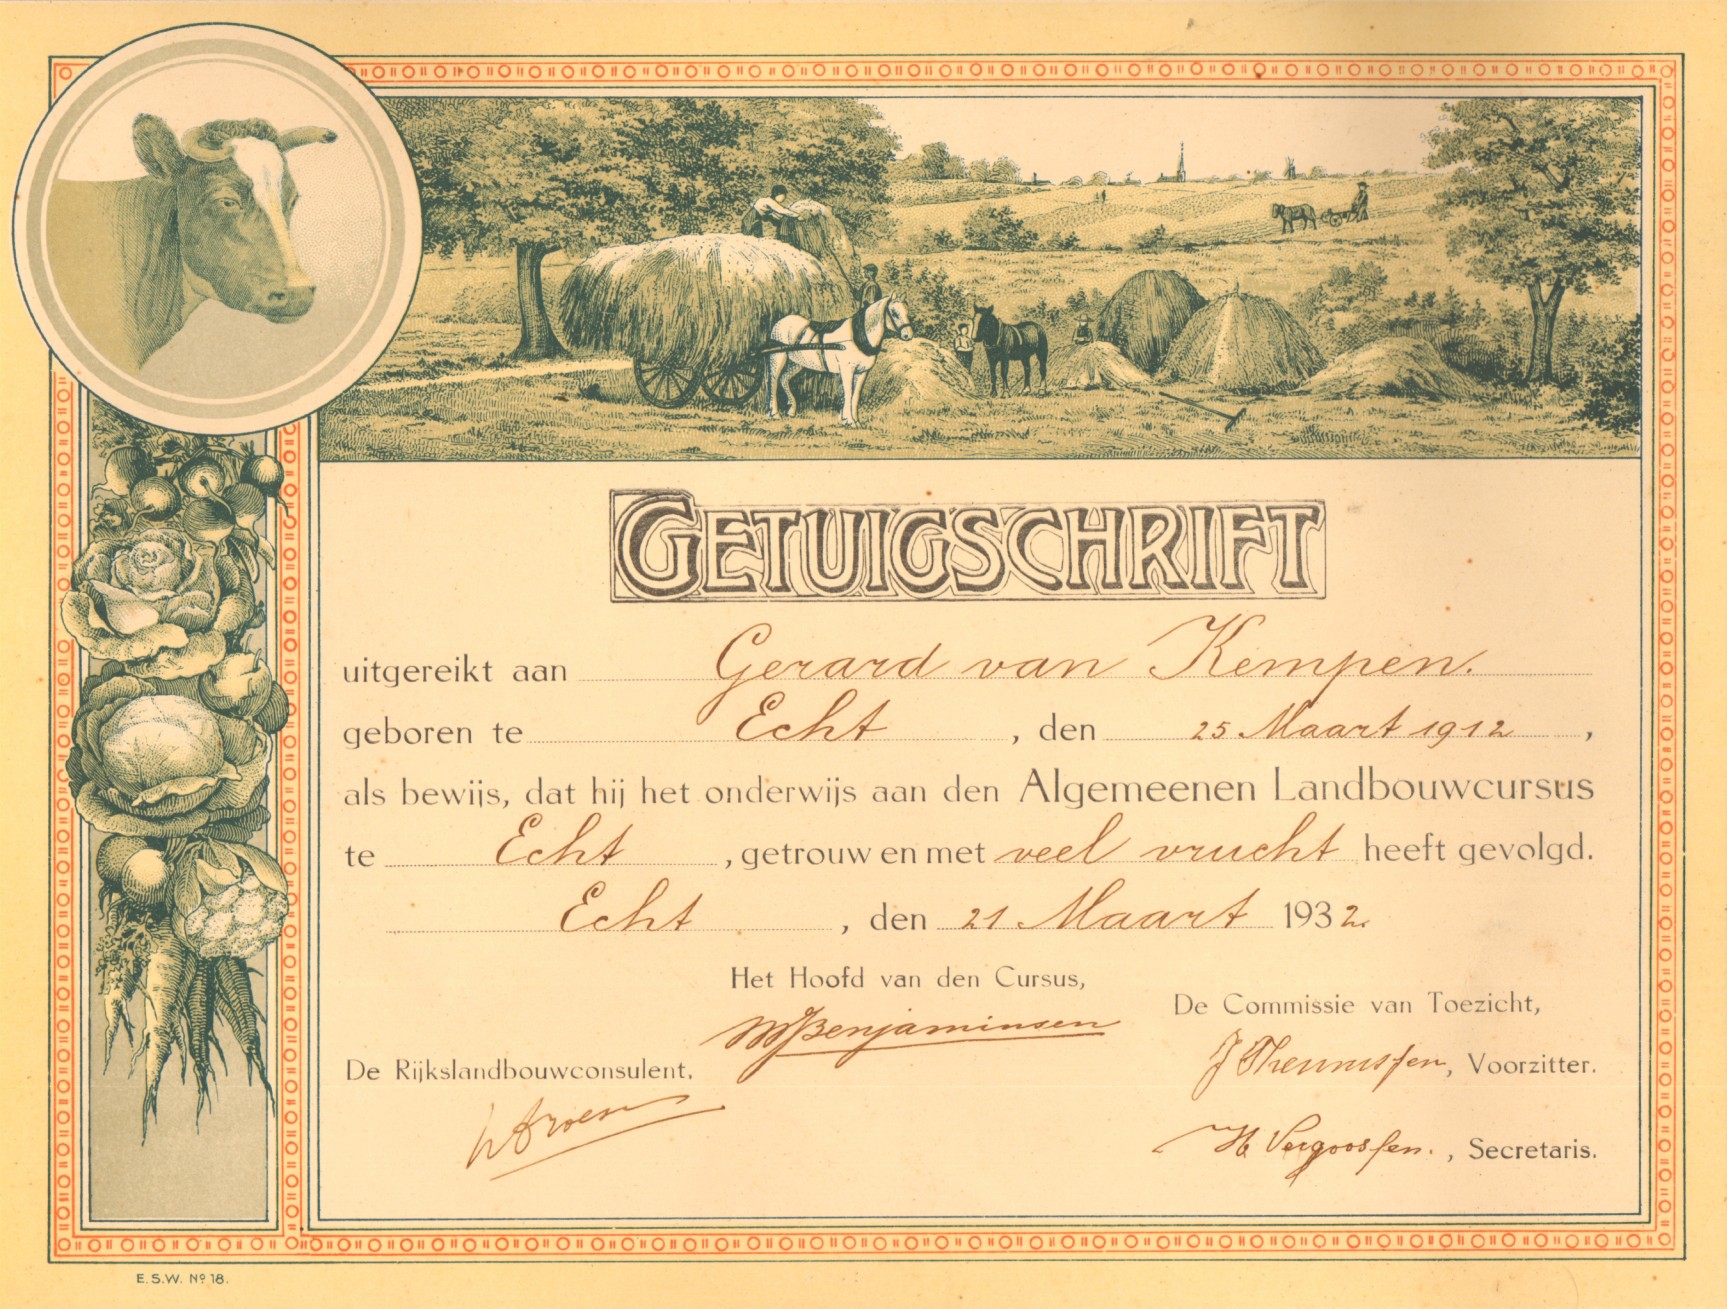 GETUIGSCHRIFT
uitgereikt aan Gerard van Kempen.
geboren te Echt, den 25 Maart 1912,
als bewijs, dat hij het onderwijs aan den Algemeenen Landbouwcursus
te Echt, getrouw en met veel vrucht heeft gevolgd.
Echt, den 21 Maart 1932.
Het Hoofd van den Cursus,
De Commissie van Toezicht,
Benjaminsen
De Rijkslandbouwconsulent,
J Theunissen, Voorzitter.
H. Vergoossen., Secretaris.
E.S.W. Nº 18.